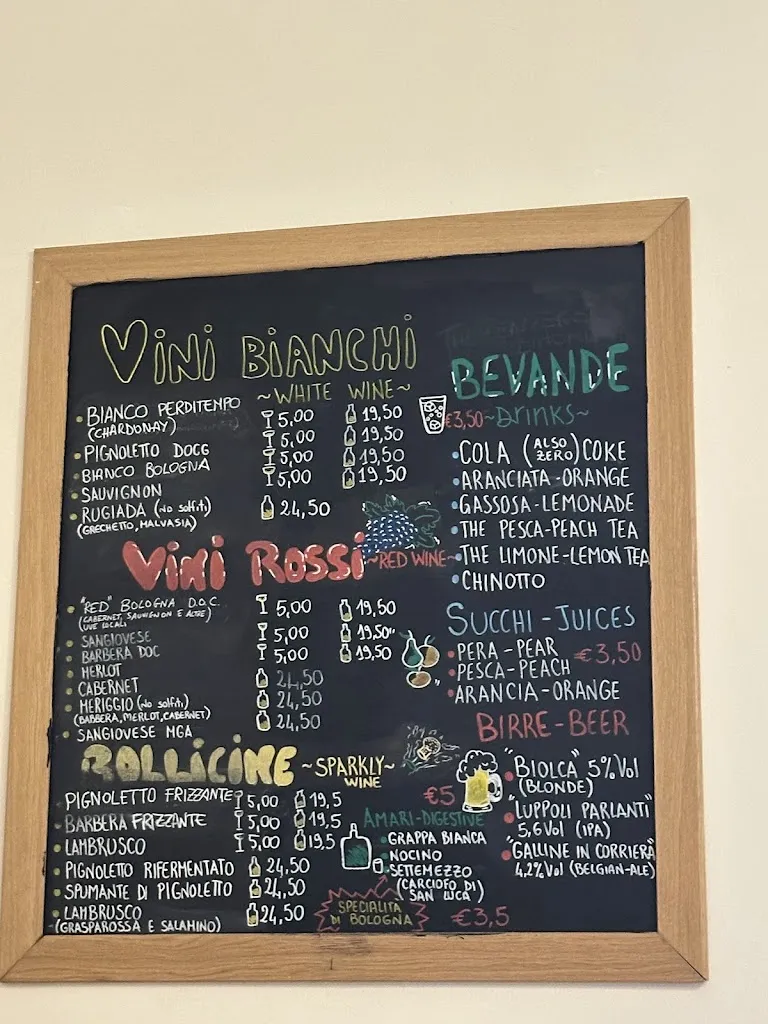 VINI BIANCHI
~WHITE WINE~
• BIANCO PERDITEMPO 5,00 19,50
(CHARDONAY)
• PIGNOLETO DOCG 5,00 19,50
• BIANCO BOLOGNA 5,00 19,50
• SAUVIGNON 5,00 19,50
• RUGIADA (No solfiti) 24,50
(GRECHETTO, MALVASIA)
VINI ROSSI ~RED WINE~
• "RED" BOLOGNA D.O.C. 5,00 19,50
(CABERNET, SAUVIGNON E ALTRE)
UVE LOCALI
• SANGIOVESE 5,00 19,50
• BARBERA DOC 5,00 19,50
• MERLOT 24,50
• CABERNET 24,50
• MERIGGIO (No solfiti) 24,50
(BARBERA, MERLOT, CABERNET)
• SANGIOVESE MGA
BOLLICINE ~SPARKLY~
WINE
• PIGNOLETTO FRIZZANTE 5,00 19,5
• BARBERA FRIZZANTE 5,00 19,5
• LAMBRUSCO 5,00 19,5
• PIGNOLETO RIFERMENTATO 24,50
• SPUMANTE DI PIGNOLETTO 24,50
• LAMBRUSCO 24,50
(GRASPAROSSA E SALAMINO)
BEVANDE
€3,50 ~DRINKS~
• COLA (ALSO ZERO) COKE
• ARANCIATA-ORANGE
• GASSOSA-LEMONADE
• THE PESCA-PEACH TEA
• THE LIMONE-LEMON TEA
• CHINOTTO
SUCCHI-JUICES
• PERA-PEAR
€3,50
• PESCA-PEACH
• ARANCIA-ORANGE
BIRRE-BEER
€5
• "BIOLCA" 5% Vol
(BLONDE)
• "LUPPOLI PARLANTI"
5,6 Vol (IPA)
• "GALLINE IN CORRIERA"
4,2% Vol (BELGIAN-ALE)
AMARI-DIGESTIVE
• GRAPPA BIANCA
• NOCINO
• SETTEMEZZO
(CARCIOFO DI
SAN LUCA)
SPECIALITÀ
DI BOLOGNA
€3,5